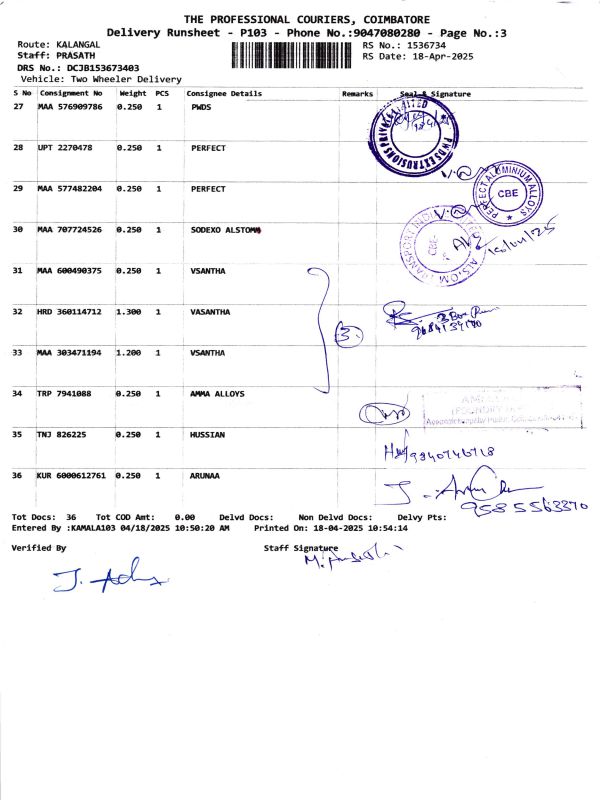 THE PROFESSIONAL COURIERS, COIMBATORE
Delivery Runsheet - P103 - Phone No.:9047080280 - Page No.:3
Route: KALANGAL
RS No.: 1536734
Staff: PRASATH
RS Date: 18-Apr-2025
DRS No.: DCJB153673403
Vehicle: Two Wheeler Delivery
S No Consignment No Weight PCS Consignee Details Remarks Seal & Signature
27 MAA 576909786 0.250 1 PWDS
PWDS EXTRUSIONS PRIVATE LIMITED
28 UPT 2270478 0.250 1 PERFECT
29 MAA 577482204 0.250 1 PERFECT
PERFECT ALUMINIUM ALLOYS
CBE
30 MAA 707724526 0.250 1 SODEXO ALSTOMM
CBE
31 MAA 600490375 0.250 1 VSANTHA
32 HRD 360114712 1.300 1 VASANTHA
3
33 MAA 303471194 1.200 1 VSANTHA
34 TRP 7941088 0.250 1 AMMA ALLOYS
35 TNJ 826225 0.250 1 HUSSIAN
9940746718
36 KUR 6000612761 0.250 1 ARUNAA
9585563370
Tot Docs: 36 Tot COD Amt: 0.00 Delvd Docs: Non Delvd Docs: Delvy Pts:
Entered By :KAMALA103 04/18/2025 10:50:20 AM Printed On: 18-04-2025 10:54:14
Verified By Staff Signature